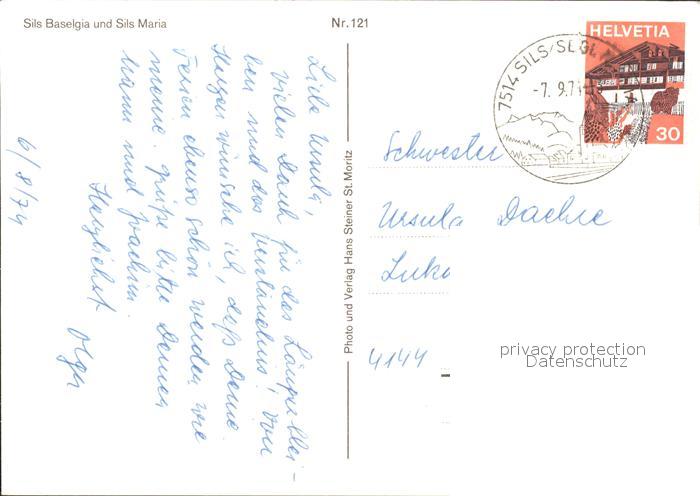 Sils Baselgia und Sils Maria
Nr. 121
Liebe Ursula,
vielen Dank für das Längerblei-
ben und das Verständnis! Von
Herzen wünsche ich, daß Deine
Ferien ebenso schön werden wie
meine. Grüße bitte Deinen
Mann und Joachim.
Herzlichst Olga
6/8/74
Photo und Verlag Hans Steiner St. Moritz
7514 SILS/SEGL
-7. 9.7
HELVETIA
30
Schwester
Ursula
4144
privacy protection
Datenschutz